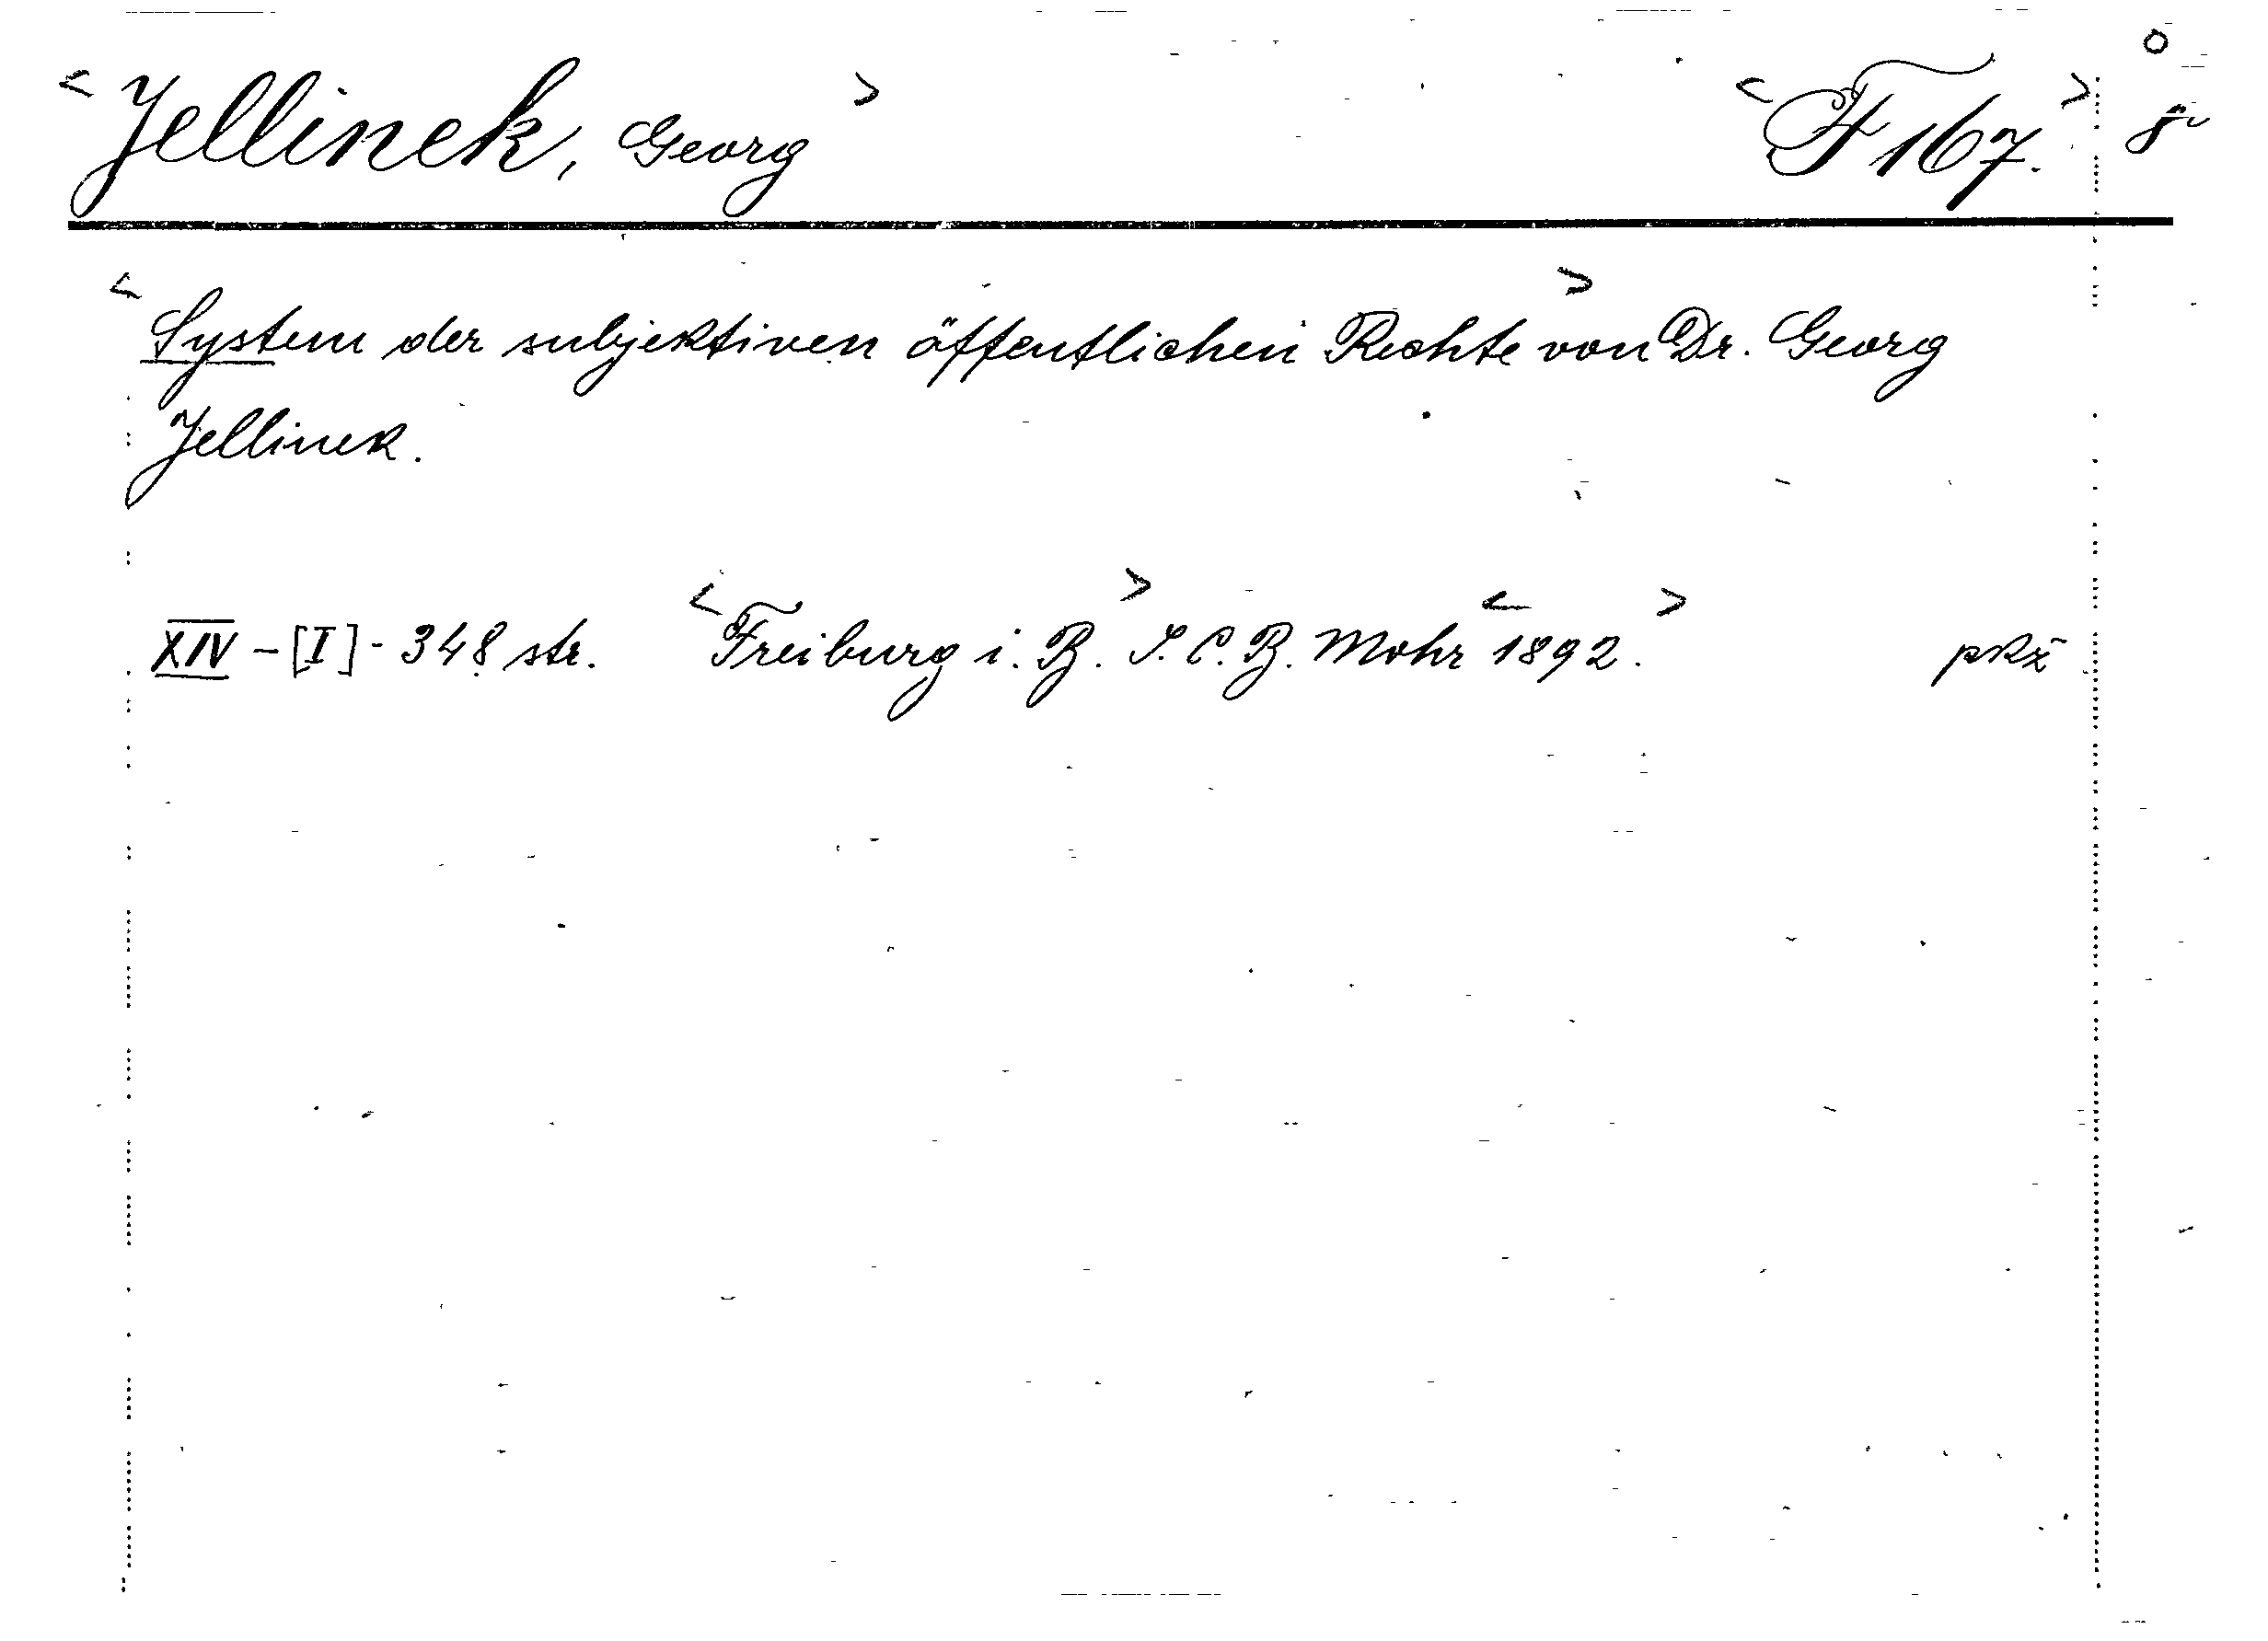 < Jellinek, Georg > < F 167. >
< System der subjektiven öffentlichen Rechte > von Dr. Georg
Jellinek.
XIV - [I] - 348 str. < Freiburg i. B. > J. C. B. Mohr < 1892. > pkž